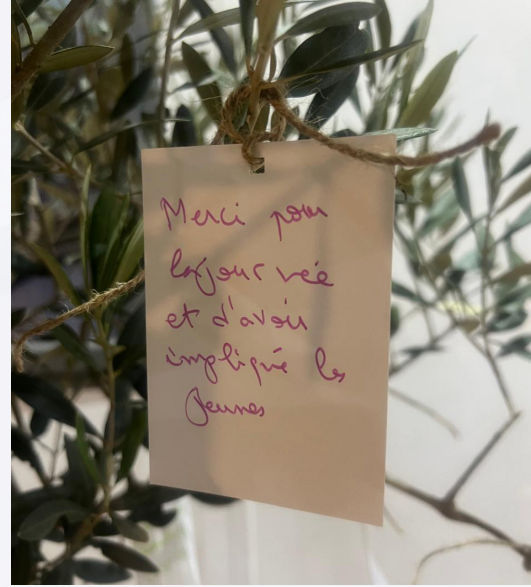 Merci pour
la journée
et d'avoir
impliqué les
jeunes